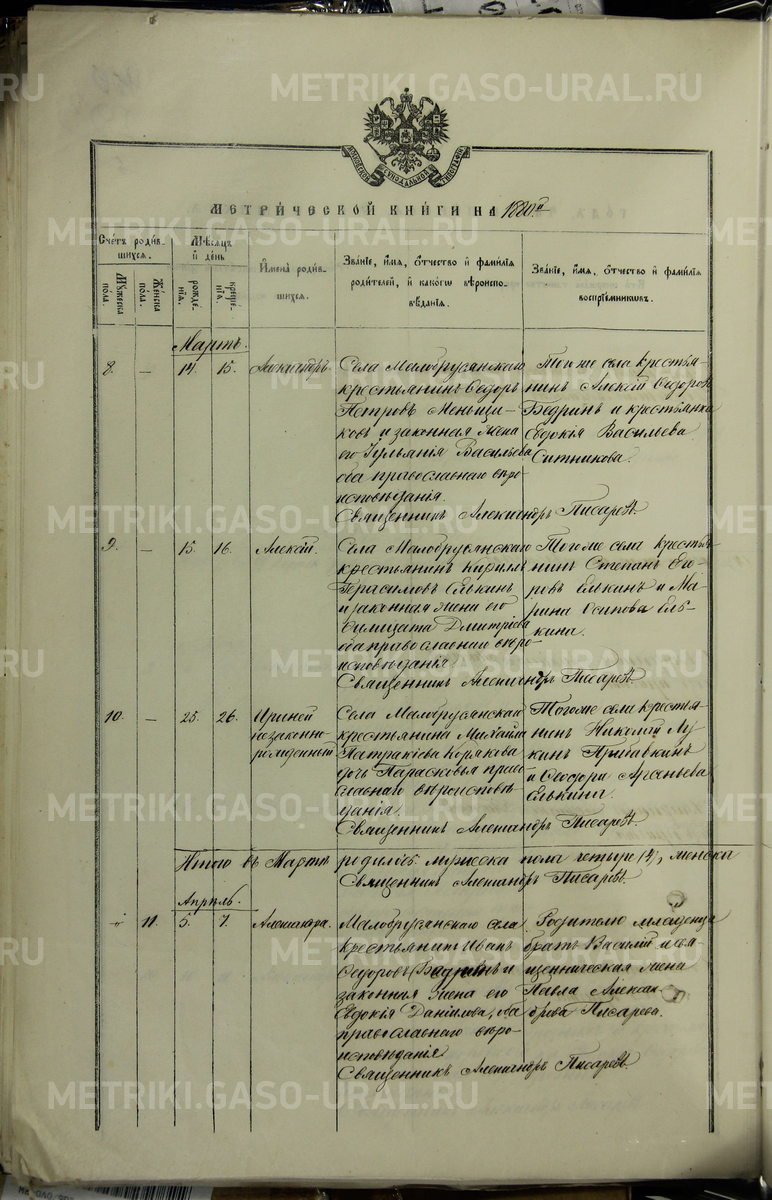 METRIKI.GASO-URAL.RU
МЕТРИ́ЧЕСКОЙ КНИ́ГИ НА 1880 й
Счетъ роди́вшихся.
Му́жеска пола.
Же́нска пола.
Мѣсяцъ и день
рожде́нїя.
креще́нїя.
И́мена роди́вшихся.
Зва́нїе, и́мя, о́тчество и фами́лїя роди́телей, и како́гѡ вѣроисповѣ́данїя.
Зва́нїе, и́мя, о́тчество и фами́лїя воспрїе́мникѡвъ.
Мартъ.
8. — 14. 15. Александръ.
Села Малобрусянскаго
крестьянинъ Ѳедоръ
Петровъ Меньщи-
ковъ и законная жена
его Іульянія Васильева
оба православнаго вѣро-
исповѣданія.
Священникъ Александръ Писаревъ.
Того же села крестья-
нинъ Алексѣй Ѳедоровъ
Бедринъ и крестьянка
Евдокія Васильева
Ситникова.
9. — 15. 16. Алексѣй.
Села Малобрусянскаго
крестьянинъ Кириллъ
Герасимовъ Елькинъ
и законная жена его
Димитріева
оба православнаго вѣро-
исповѣданія
Священникъ Александръ Писаревъ.
Того же села крестья-
нинъ Степанъ Его-
ровъ Елькинъ и Ма-
рина Осипова Ель-
кина.
10. — 25. 26. Ириней
незаконно-
рожденный
Села Малобрусянскаго
крестьянина Михаила
Патракіева
дочь Парасковья право-
славнаго вѣроисповѣ-
данія.
Священникъ Александръ Писаревъ.
Того же села крестья-
нинъ Николай Лу-
кинъ
и Ѳеодора Арсеньева
Елькина.
Итого въ Мартѣ родилось мужеска пола четыре (4), женска
Священникъ Александръ Писаревъ.
Апрѣль.
— 11. 5. 7. Александра.
Малобрусянскаго села
крестьянинъ Иванъ
Ѳедоровъ Бедринъ и
законная жена его
Евдокія Даніилова, оба
православнаго вѣро-
исповѣданія
Священникъ Александръ Писаревъ.
Родителю младенца
братъ Василій и свя-
щенническая жена
Павла Алексан-
дрова Писарева.